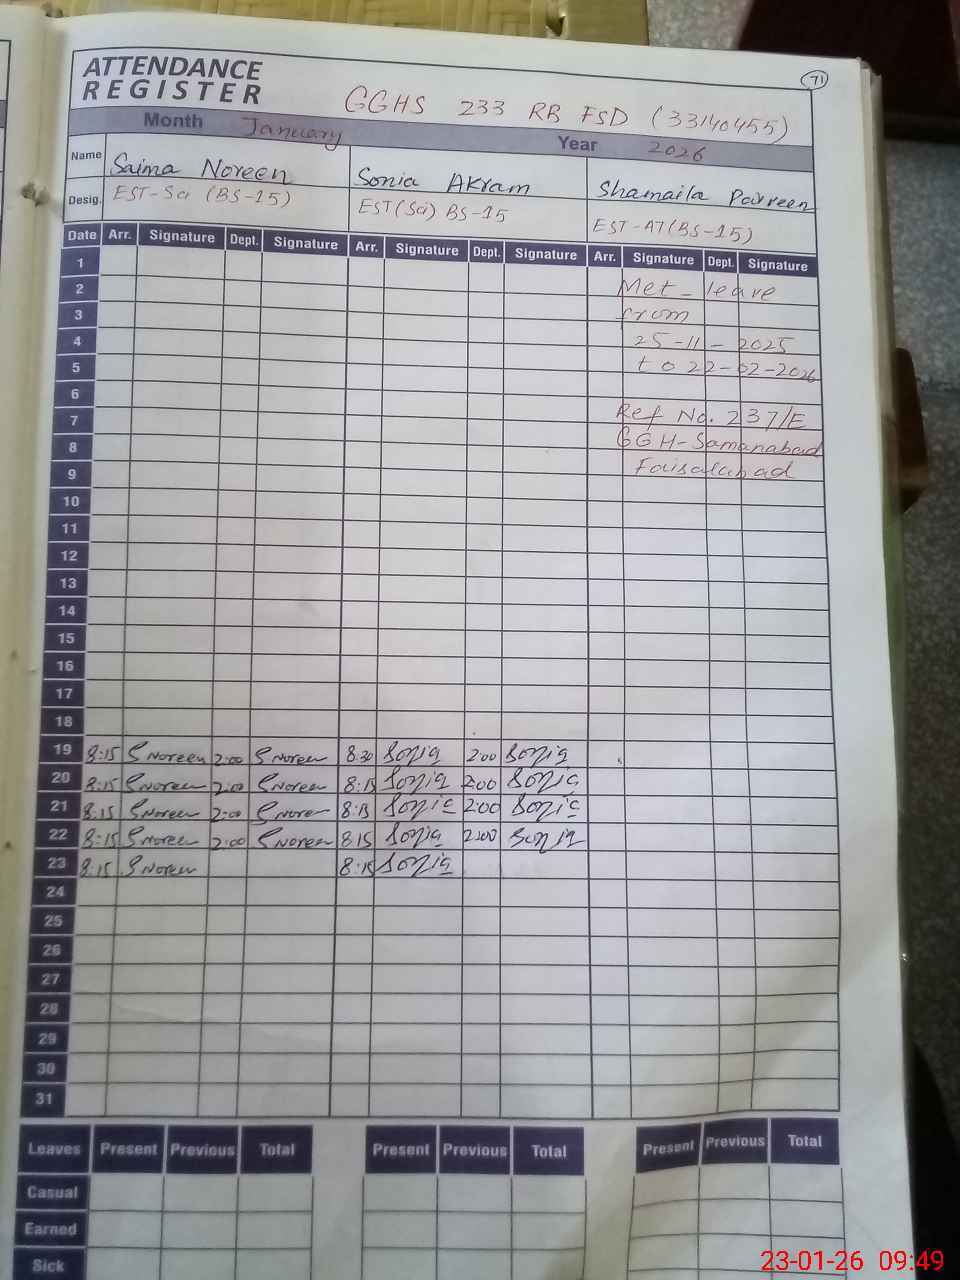 71
ATTENDANCE
REGISTER
GGHS 233 RB FSD (33140455)
Month January Year 2026
Name Saima Noreen Sonia Akram Shamaila Parveen
Desig. EST-Sci (BS-15) EST(Sci) BS-15 EST-AT(BS-15)
Date Arr. Signature Dept. Signature Arr. Signature Dept. Signature Arr. Signature Dept. Signature
1
2 Met-leave
3 from
4 25-11-2025
5 to 22-02-2026
6
7 Ref No. 237/E
8 GGH-Samanabad
9 Faisalabad
10
11
12
13
14
15
16
17
18
19 8:15 S Noreen 2:00 S Noreen 8:30 Sonia 2:00 Sonia
20 8:15 S Noreen 2:00 S Noreen 8:15 Sonia 2:00 Sonia
21 8:15 S Noreen 2:00 S Noreen 8:15 Sonia 2:00 Sonia
22 8:15 S Noreen 2:00 S Noreen 8:15 Sonia 2:00 Sonia
23 8:15 S Noreen 8:15 Sonia
24
25
26
27
28
29
30
31
Leaves Present Previous Total Present Previous Total Present Previous Total
Casual
Earned
Sick
23-01-26 09:49